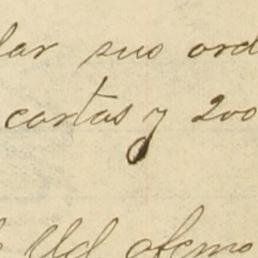 dar sus ord
cartas y 200
Ud afmo